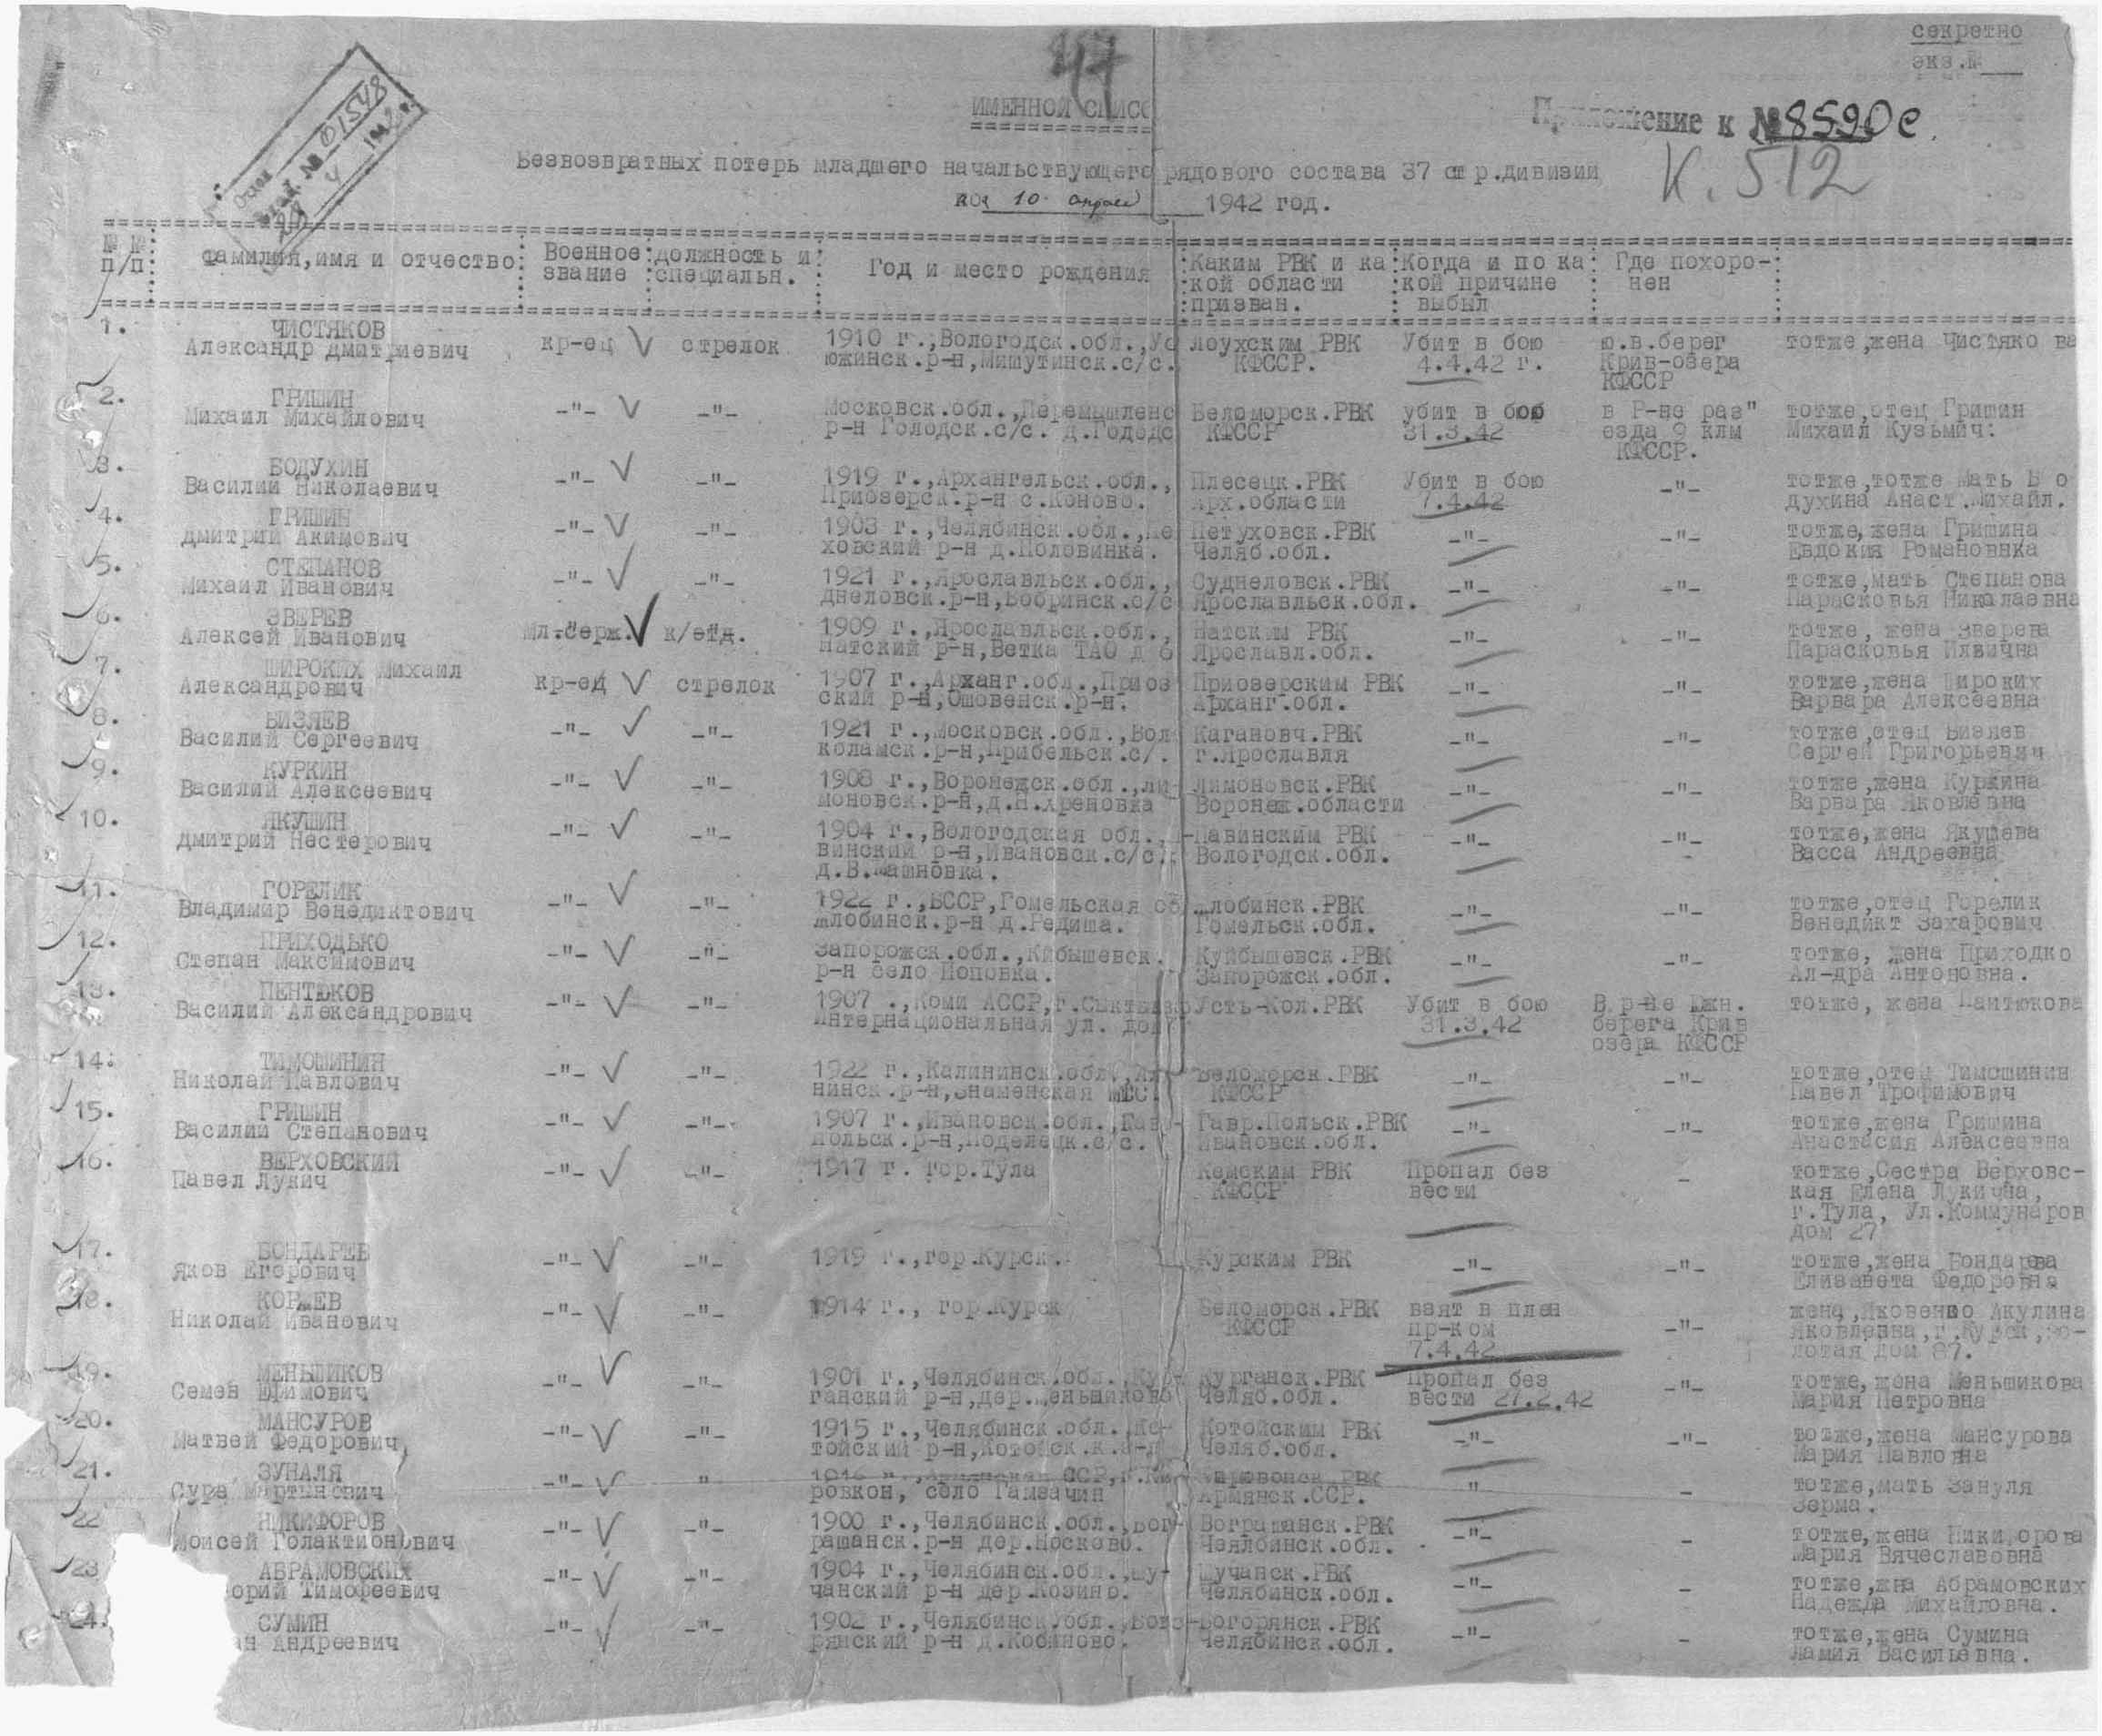 секретно
экз.№
47
ИМЕННОЙ СПИСО
Приложение к №8590с.
К. 512
№ 01548
4 1942 г.
Безвозвратных потерь младшего начальствующего рядового состава 37 стр.дивизии
10 апреля 1942 год.
№ № п/п
Фамилия,имя и отчество
Военное звание
должность и специальн.
Год и место рождения
Каким РВК и какой области призван.
Когда и по какой причине выбыл
Где похоронен
1. ЧИСТЯКОВ кр-ец стрелок 1910 г.,Вологодск.обл.,Ус Лоухским РВК Убит в бою ю.в.берег тотже,жена Чистякова
Александр Дмитриевич южинск.р-н,Мишутинск.с/с. КФССР. 4.4.42 г. Крив-озера
КФССР
2. ГРИШИН -"- -"- Московск.обл.,Перемышленс Беломорск.РВК убит в бою в Р-не раз" тотже,отец Гришин
Михаил Михайлович р-н Голодск.с/с. д.Гододс КФССР 31.3.42 езда 9 клм Михаил Кузьмич.
КФССР.
3. БОДУХИН -"- -"- 1919 г.,Архангельск.обл., Плесецк.РВК Убит в бою -"- тотже,тотже Мать Бо
Василий Николаевич Приозерск.р-н с.Коново. Арх.области 7.4.42 духина Анаст.Михайл.
4. ГРИШИН -"- -"- 1903 г.,Челябинск.обл.,Пе Петуховск.РВК -"- -"- тотже,жена Гришина
Дмитрий Акимович ховский р-н д.Половинка. Челяб.обл. Евдокия Романовнка
5. СТЕПАНОВ -"- -"- 1921 г.,Ярославльск.обл., Суднеловск.РВК -"- -"- тотже,мать Степанова
Михаил Иванович днеловск.р-н,Бобринск.с/с Ярославльск.обл. Парасковья Николаевна
6. ЗВЕРЕВ мл.серж. к/отд. 1909 г.,Ярославльск.обл., Натским РВК -"- -"- тотже, жена Зверева
Алексей Иванович Натский р-н,Ветка ТАО д 6 Ярославл.обл. Парасковья Илвична
7. ШИРОКИХ Михаил кр-ец стрелок 1907 г.,Арханг.обл.,Приоз Приозерским РВК -"- -"- тотже,жена Широких
Александрович ский р-н,Ошовенск.р-н. Арханг.обл. Варвара Алексеевна
8. БИЗЯЕВ -"- -"- 1921 г.,Московск.обл.,Вол Кагановч.РВК -"- -"- тотже,отец Бизяев
Василий Сергеевич коламск.р-н,Прибельск.с/. г.Ярославля Сергей Григорьевич
9. КУРКИН -"- -"- 1908 г.,Воронежск.обл.,ли- Лимоновск.РВК -"- -"- тотже,жена Куркина
Василий Алексеевич моновск.р-н,д.Н.Хреновка Воронеж.области Варвара Яковлевна
10. ЯКУШИН -"- -"- 1904 г.,Вологодская обл., -Павинским РВК -"- -"- тотже,жена Якушева
Дмитрий Нестерович винский р-н,Ивановск.с/с. Вологодск.обл. Васса Андреевна
д.В.Машновка.
11. ГОРЕЛИК -"- -"- 1922 г.,БССР,Гомельская об Жлобинск.РВК -"- -"- тотже,отец Горелик
Владимир Венедиктович Жлобинск.р-н д.Редиша. Гомельск.обл. Венедикт Захарович
12. ПРИХОДЬКО -"- -"- Запорожск.обл.,Кйбышевск. Куйбышевск.РВК -"- -"- тотже, жена Приходко
Степан Максимович р-н село Поповка. Запорожск.обл. Ал-дра Антоновна.
13. ПЕНТЮКОВ -"- -"- 1907 .,Коми АССР,г.Сыктывкр Усть-Кол.РВК Убит в бою В р-не Южн. тотже, жена Пантюкова
Василий Александрович Интернациональная ул. дом 31.3.42 берега Крив
озера КФССР
14. ТИМОШИНИН -"- -"- 1922 г.,Калининск.обл. Беломорск.РВК -"- -"- тотже,отец Тимошинин
Николай Павлович нинск.р-н,Знаменская МТС КФССР Павел Трофимович
15. ГРИШИН -"- -"- 1907 г.,Ивановск.обл.,Гав- Гавр.Польск.РВК -"- -"- тотже,жена Гришина
Василии Степанович польск.р-н,Поделецк.с/с. Ивановск.обл. Анастасия Алексеевна
16. ВЕРХОВСКИЙ -"- -"- 1917 г. гор.Тула Кемским РВК Пропал без - тотже,Сестра Верховс-
Павел Лукич КФССР вести кая Елена Лукична,
г.Тула, Ул.Коммунаров
дом 27
17. БОНДАРЕВ -"- -"- 1919 г.,гор.Курск. Курским РВК -"- -"- тотже,жена Бондарева
Яков Егорович Елизавета Федоровна
18. КОРНЕВ -"- -"- 1914 г., гор.Курск Беломорск.РВК взят в плен -"- жена,Яковенко Акулина
Николай Иванович КФССР пр-ком Яковлевна,г.Курск,зо-
7.4.42 лотая дом 87.
19. МЕНЬШИКОВ -"- -"- 1901 г.,Челябинск.обл.,Кур- Курганск.РВК Пропал без -"- тотже,жена Меньшикова
Семен Ефимович ганский р-н,дер.Меньшиково Челяб.обл. вести 27.2.42 Мария Петровна
20. МАНСУРОВ -"- -"- 1915 г.,Челябинск.обл.,Ко- Котойским РВК -"- -"- тотже,жена Мансурова
Матвей Федорович, тойский р-н,Котойск.к.з-д Челяб.обл. Мария Павловна
21. ЗУНАЛЯ -"- " 1916 г.,Армянская ССР, Кировонск.РВК " - тотже,мать Зануля
Сура Мартынович ровкон, село Гамзачин Армянск.ССР. Зерма.
22 НИКИФОРОВ -"- -"- 1900 г.,Челябинск.обл.,Вог- Вограшанск.РВК -"- - тотже,жена Ники.орова
Моисей Голактионович рашанск.р-н дер.Носково. Челябинск.обл. Мария Вячеславовна
23 АБРАМОВСКИХ -"- -"- 1904 г.,Челябинск.обл.,Шу- Шучанск.РВК -"- - тотже,жна Абрамовских
орий Тимофеевич чанский р-н дер.Козино. Челябинск.обл. Надежда Михайловна.
24. СУМИН -"- -"- 1902 г.,Челябинск.обл.,Бого- Богорянск.РВК -"- - тотже,жена Сумина
ан Андреевич рянский р-н д.Кобяново. Челябинск.обл. Ламия Васильевна.